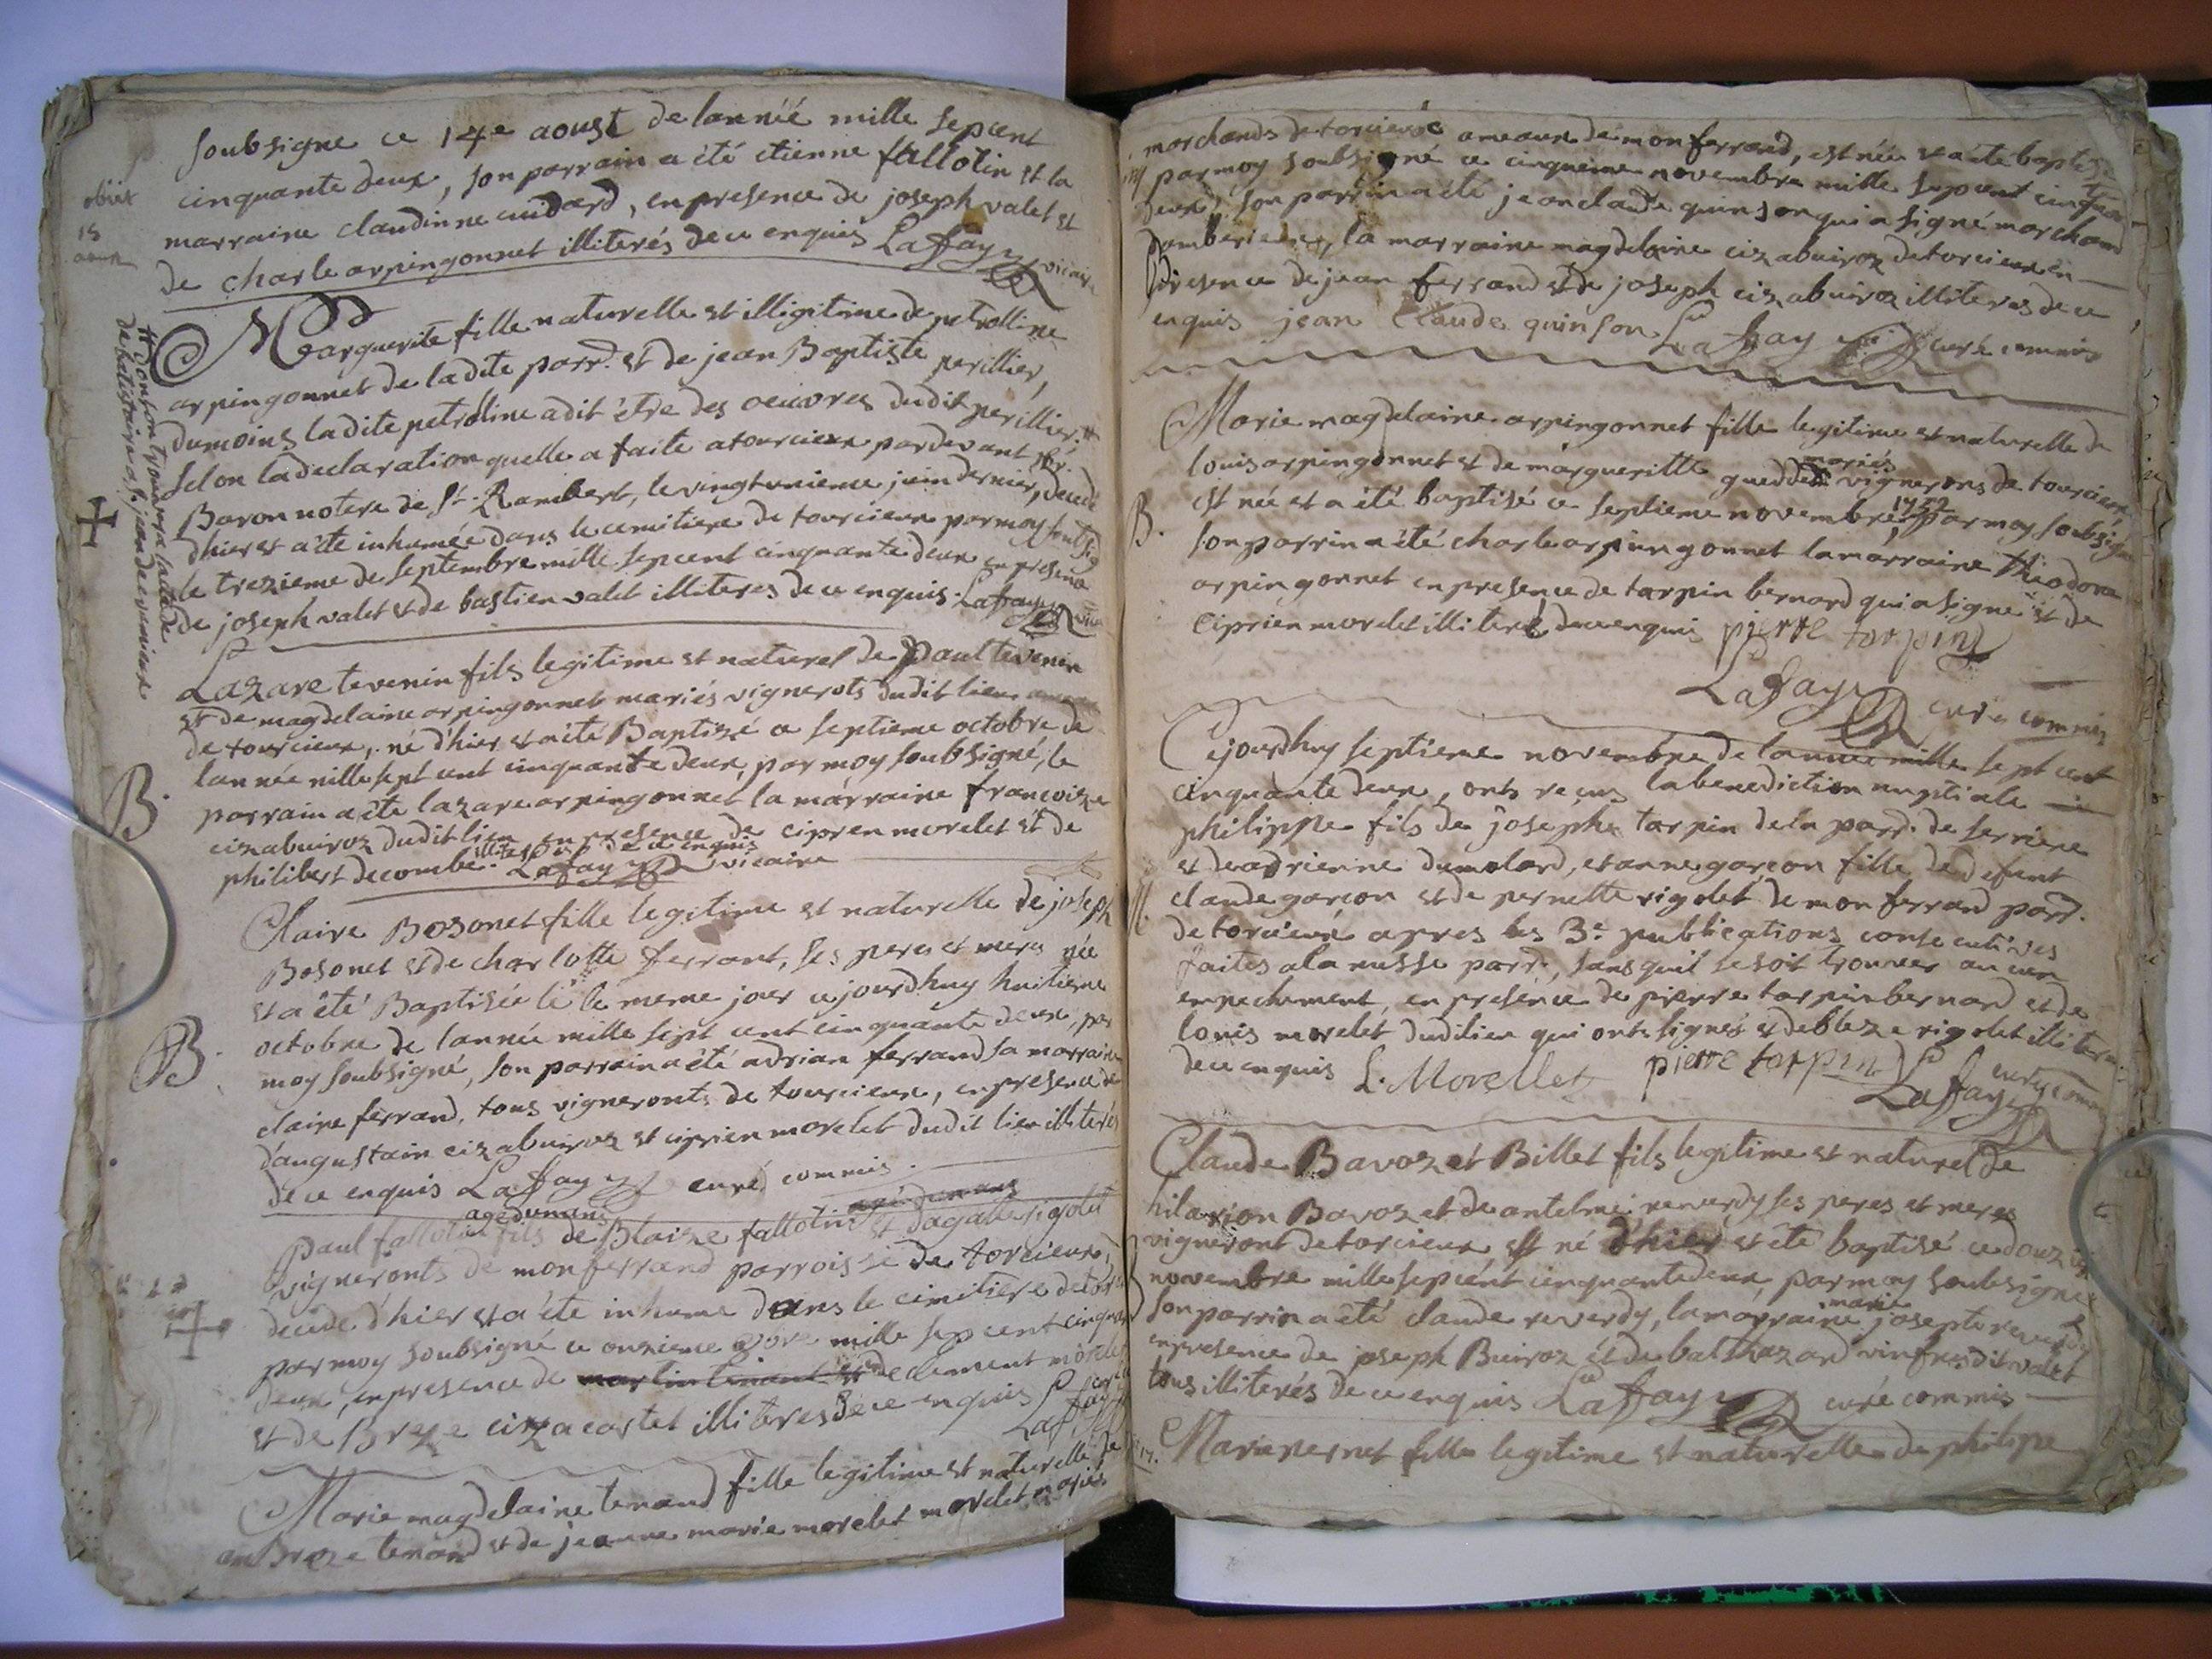 soubsigne ce 14e aoust de lanneé mille sepcent
cinquante deux, son parrain a été etienne fallotin et la
marraine claudinne cuidard, en presence de joseph valet et
de charle arpingonnet illiterés de ce enquis Laffay vicaire
obiit
15
Marguerite fille naturelle et illigitime de petrolline
arpingonnet de ladite parr. et de jean Baptiste perillier,
dumoins ladite petroline a dit être des oeuvres dudit perillier #
selon la declaration quelle a faite a tourcieux pardevant
Baron notere de St. Rambert, le vingtunieme juin dernier, decedé
dhier et a été inhumée dans le cemitiere de tourcieux par moy soubsig
le trezieme de septembre mille sepcent cinquante deux en presence
de joseph valet et de bastien valet illiteres de ce enquis. Laffay
# dont on trouvera lacte de
Lazare tevenin fils legitime et naturel de paul tevenin
et de magdelaine arpingonnet mariés vignerots dudit lieu
de tourcieux, né d'hier et a été Baptizé ce septieme octobre de
lannée mille sept cent cinquante deux, par moy soubsigné, le
B.
parrain a été lazare arpingonnet la marraine francoize
cizabuiroz dudit lieu en presence de ciprien morelet et de
philibert decombe illiteres de ce enquis Laffay vicaire
Claire Bosonet fille legitime et naturelle de joseph
Bosonet et de charlotte ferrant, ses peres et meres née
et a été Baptisée lé le meme jour cejourdhuy huitieme
octobre de lannée mille sept cent cinquante deux, par
B.
moy soubsigné, son parrain a été adrian ferrand sa marraine
claire ferrand, tous vigneronts de tourcieux, en presence de
daugustain cizabuiroz et ciprien morelet dudit lieu illiterés
de ce enquis Laffay curé commis.
paul fallotin agé dun ans fils de Blaize fallotin et dagathe rigolet
vigneronts de monferrand parroisse de torcieux,
decede d'hier et a été inhume dans le cimitiere de
par moy soubsigné ce onzieme mille sepcent cinquante
deux, en presence de et de clement morelet
et de Breze cizacartel illiteres de ce enquis Laffay
Marie magdelaine tenand fille legitime et naturelle de
ambroze tenand et de jeanne marie morelet morelet mariés
marchands de torcieux ameaux de monferrand, est née et a été baptisé
par moy soubsigné ce cinquieme novembre mille sepcent cinquante
deux, son parrin a été jean claude quinson qui a signé marchand
damberieux, la marraine magdelaine cizabuiroz de torcieux en
presence de jean ferrand et de joseph cizabuiroz illiteres de ce
enquis jean Claude quinson Laffay curé commis
Marie magdelaine arpingonnet fille legitime et naturelle de
louis arpingonnet et de margueritte mariés vignerons de tourcieux
est née et a été baptisé ce septieme novembre, 1752 par moy soubsigné
B.
son parrin a été charle arpingonnet la marraine theodora
arpingonnet en presence de tarpin bernard qui a signé et de
ciprien morelet illiteré de ce enquis pierre tarpin
Laffay curé commis
Cejourdhuy septieme novembre de lannee mille sept cent
cinquante deux, onts reçus la benediction nuptiale
philippe fils de joseph tarpin de la parr. de serriere
et deadrienne dumolard, et anne garçon fille de defunt
claude garçon et de pernette rigolet de monferrand parr.
M.
de torcieux apres les 3e publications consecutives
faites a la messe parr., sans quil se soit trouver aucun
empechement, en presence de pierre tarpin bernard et de
louis morelet dudilieu qui onts signés et de bleze rigolet illiteré
de ce enquis L. Morellet pierre tarpin Laffay curé comm
Claude Bavoz et Billet fils legitime et naturel de
hilarion Bavoz et de antelme reverdy ses peres et meres
vigneront de torcieux est né d'hier et été baptisé ce douz
novembre mille sepcent cinquante deux, par moy soubsigne
son parrin a été claude reverdy, la marraine marie josepte reverdy
en presence de joseph Buiroz et de balthazard dit valet
tous illiterés de ce enquis Laffay curé commis
Marie pernet fille legitime et naturelle de philipe